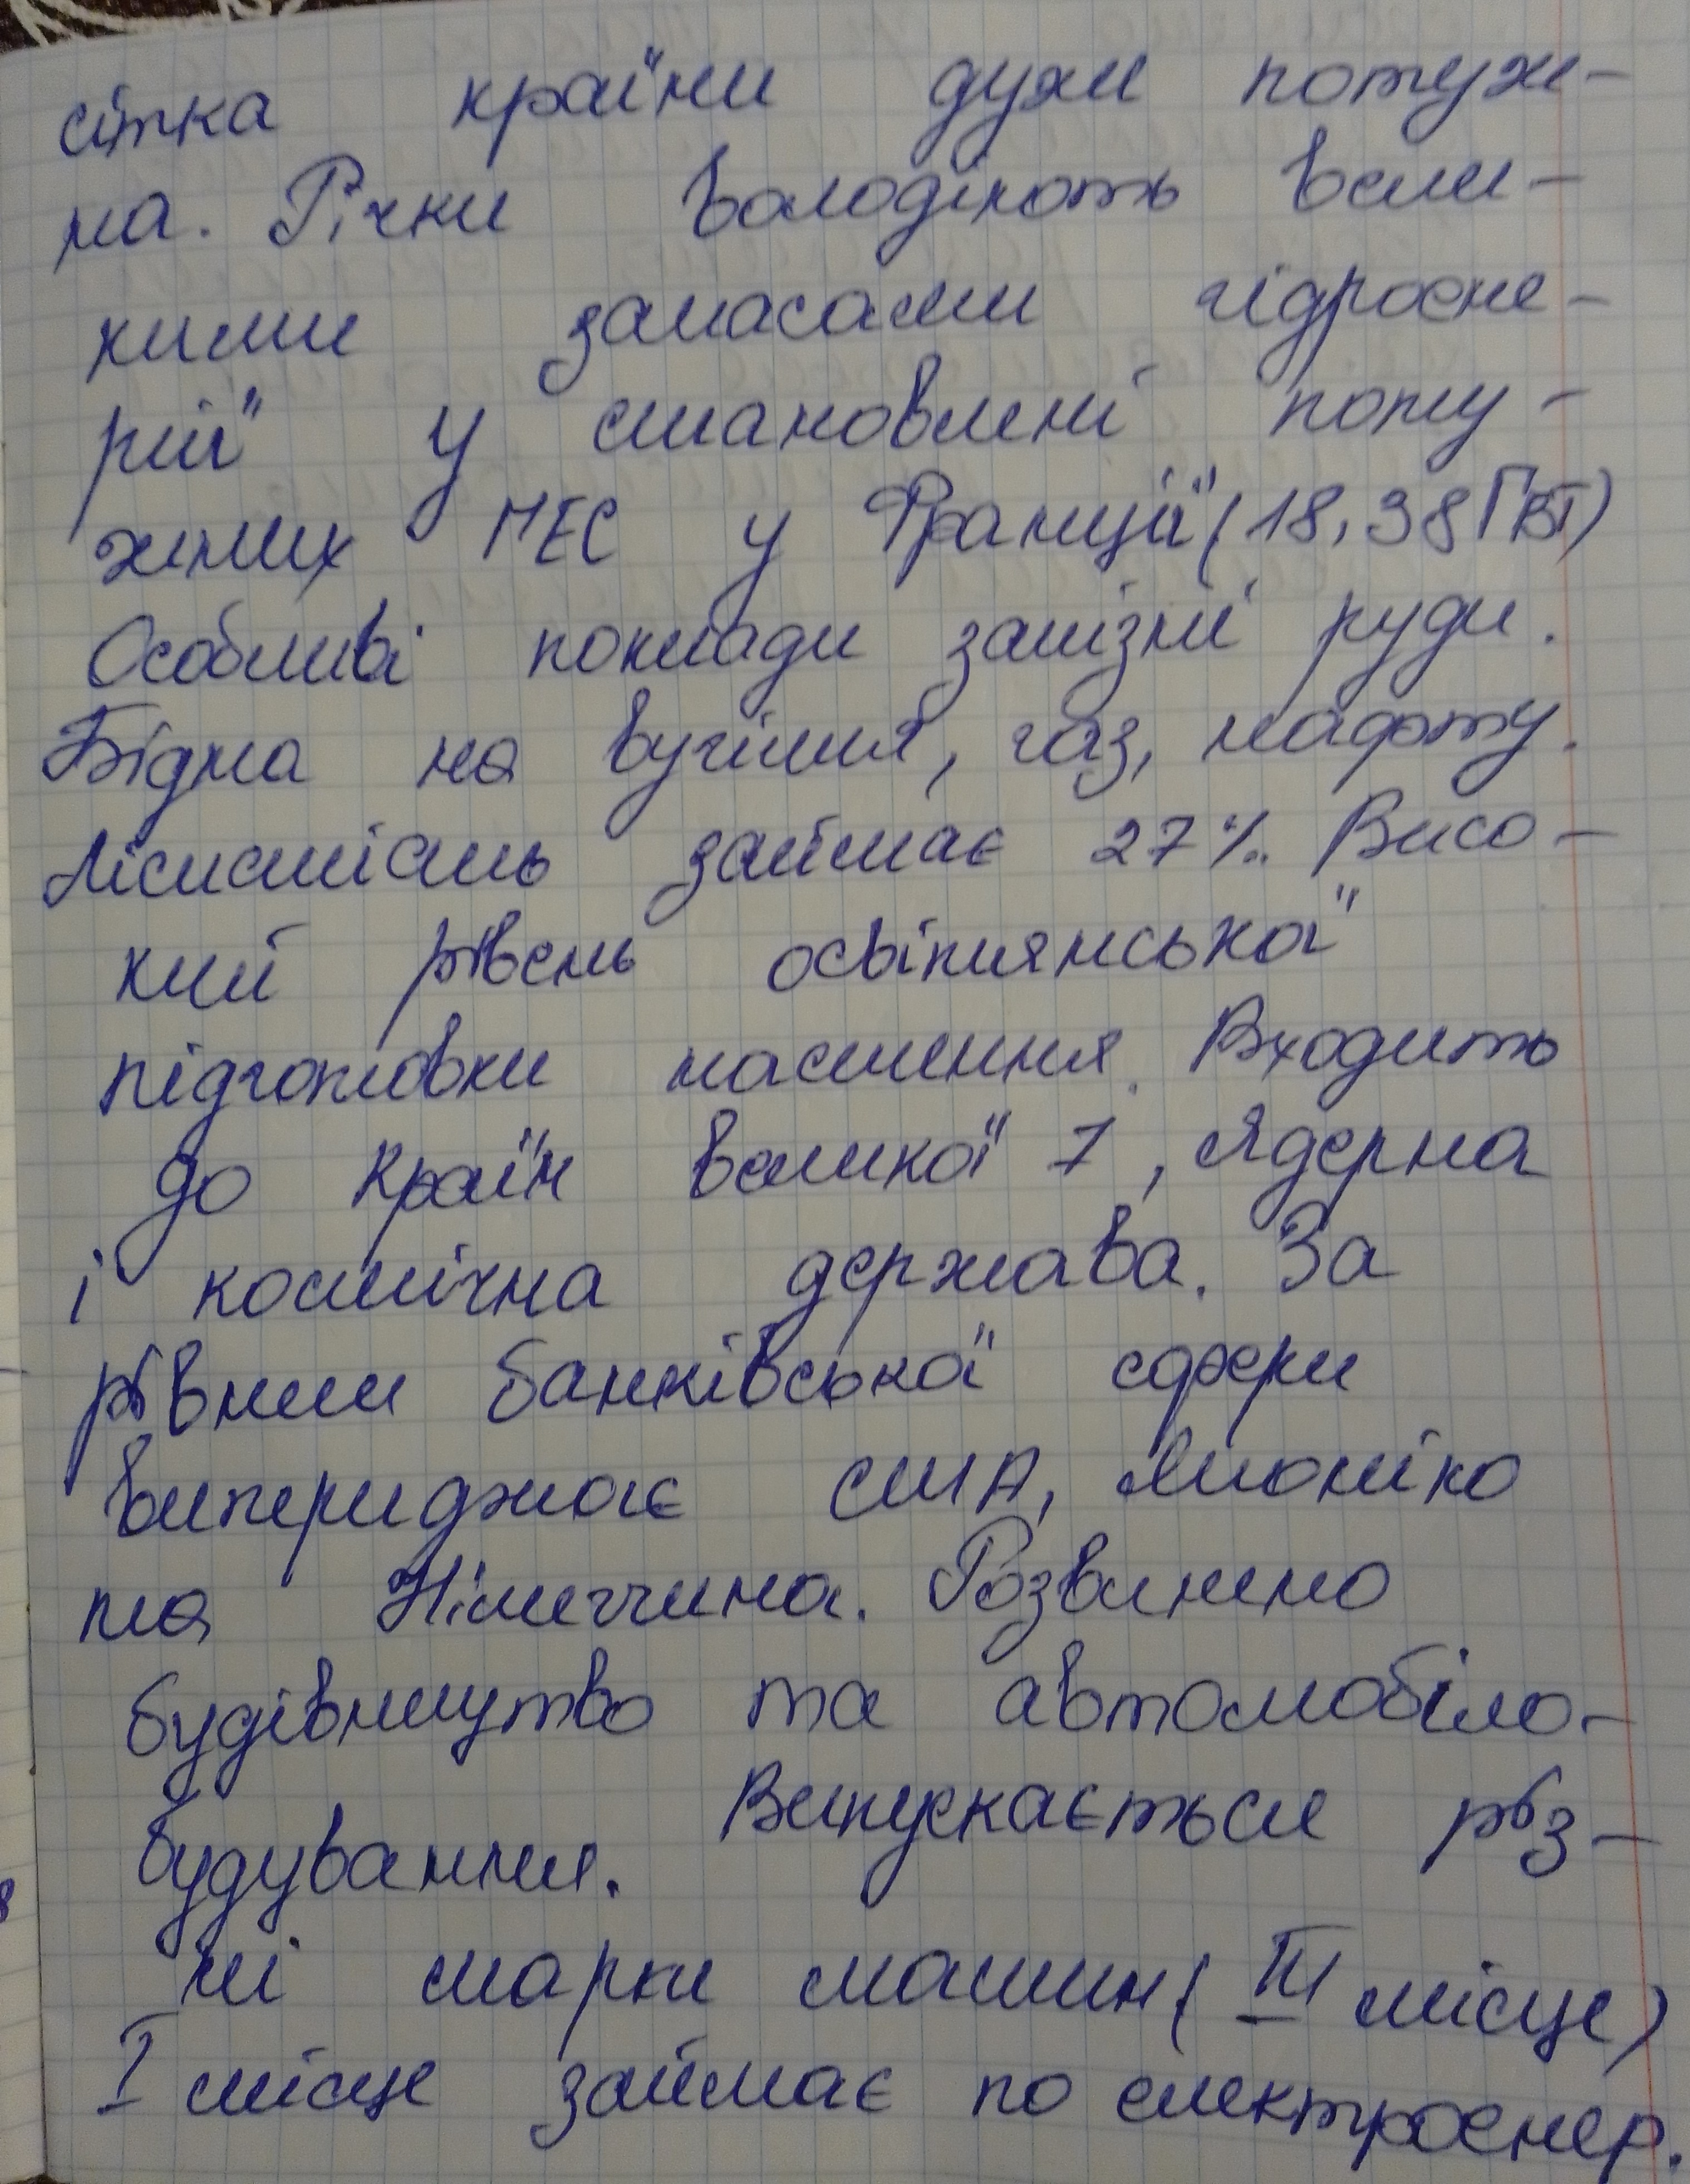 сітка країни дужи потуж-
на. Річки володіють вели-
кими запасами гідроене-
ргії У становлені поту-
жних ГЕС у Франції (18,38 ГВТ)
Особливі поклади залізні руди.
Бідна на вугілля, газ, нафту.
займає 27%. Висо-
кий рівень освітянської
підготовки населення. Входить
до країн великої 7, Ядерна
і космічна держава. За
рівним банківської сфери
випериджає США, Японіко
та Німеччина. Розвинено
будівництво та автомобіло-
будування. Випускається різ-
ні марки машин (III місце)
I місце займає по електроенер.